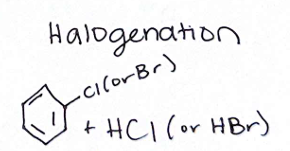 Halogenation
Cl (or Br)
+ HCl (or HBr)